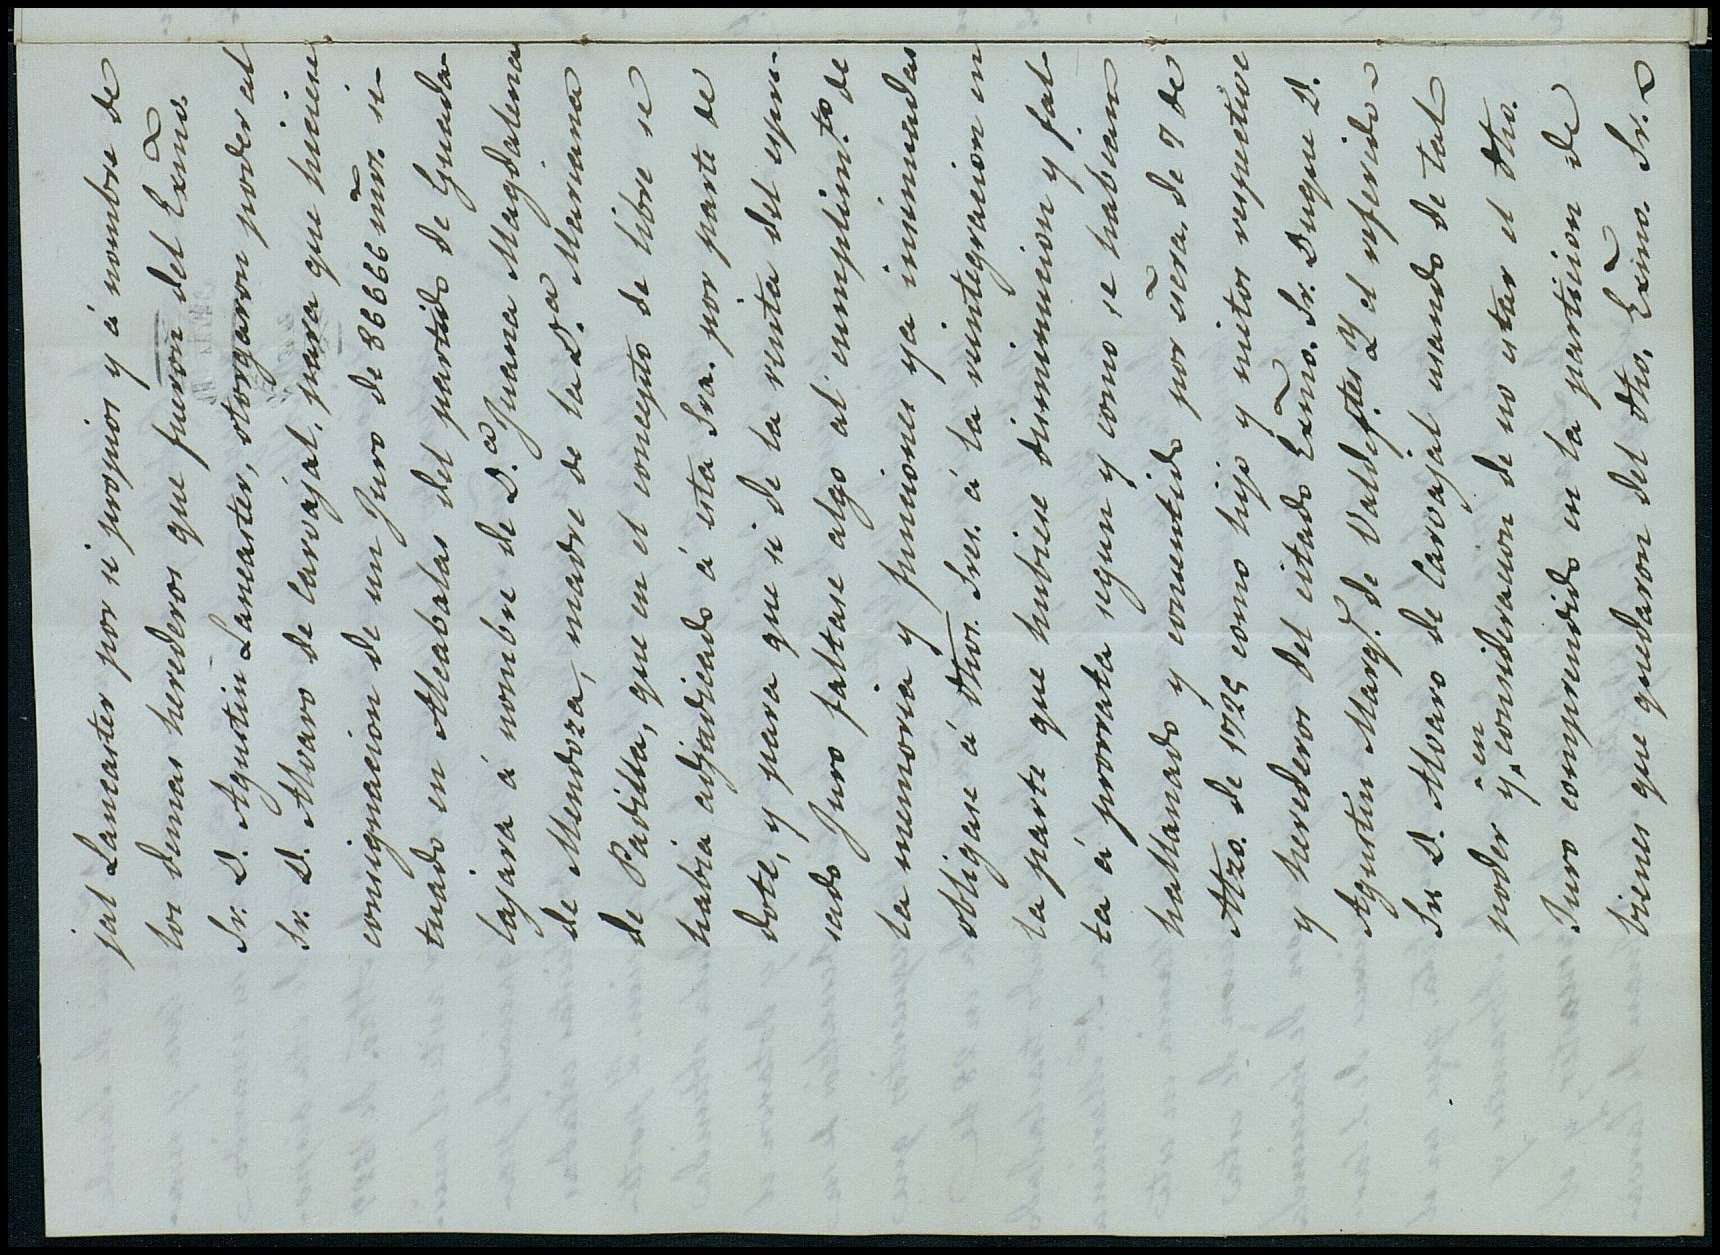 jal Lancaster por si propios y á nombre de
los demas herederos que fueron del Exmõ.
Sr. D. Agustin Lancaster, otorgaron poder al
Sr. D. Alvaro de Carvajal, para que hiciese
consignacion de un Juro de 86666 mrs. si-
tuado en Alcabalas del partido de Guada-
lajara á nombre de D.ª Juana Magdalena
de Mendoza, madre de la D.ª Mariana
de Padilla, que en el concepto de libre se
habia adjudicado á esta Sra. por parte de
dote, y para que si de la renta del espre-
sado Juro faltase algo al cumplim.to de
la memoria y funciones ya insinuadas
obligase á dhos. Sres. á la reintegracion en
la parte que hubiese disminucion y fal-
ta á prorrata segun y como se habian
hallanado y consentido por escra. de 7 de
Mzo. de 1725 como hijo y nietos respective
y herederos del citado Exmõ. Sr. Duque D.
Agustin Marq.s de Valdef.tes Y el referido
Sr. D. Alvaro de Carvajal usando de tal
poder y en consideracion de no estar el dho.
Juro comprendido en la particion de
bienes que quedaron del dho. Exmõ. Sr.